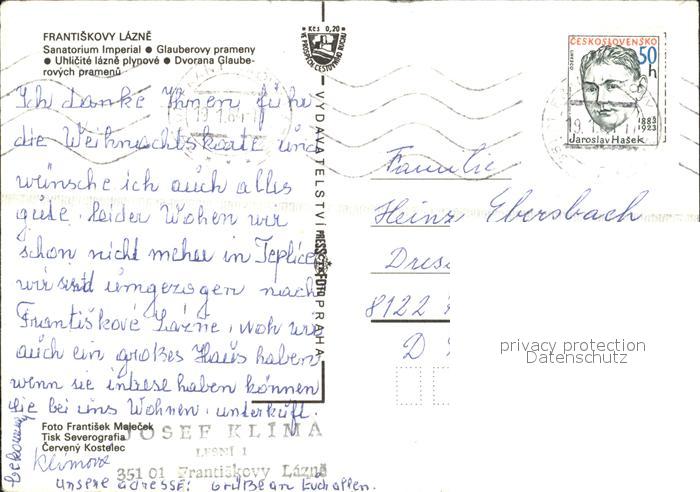 FRANTIŠKOVY LÁZNĚ
Sanatorium Imperial ● Glauberovy prameny
● Uhličité lázně plynové ● Dvorana Glaube-
rových pramenů
Kčs 0,20
VYDAVATELSTVÍ PRESSFOTO PRAHA
ČESKOSLOVENSKO
50 h
1883
1923
Jaroslav Hašek
Ich danke Ihnen führ
die Weihnachtskarte und
wünsche ich auch alles
gute. leider Wohen wir
schon nicht meher in Teplice
wir sind umgezogen nach
Františkové Lázne, woh wir
auch ein großes Haus haben
wenn sie intrese haben können
sie bei uns Wohnen, unterkuft.
Klimová
Familie
Heinz Ebersbach
Dres
8122
D
privacy protection
Datenschutz
Foto František Maleček
Tisk Severografia
Červený Kostelec
JOSEF KLÍMA
LESNÍ 1
351 01 Františkovy Lázně
unsere adresse: Grüße an Euch allen.